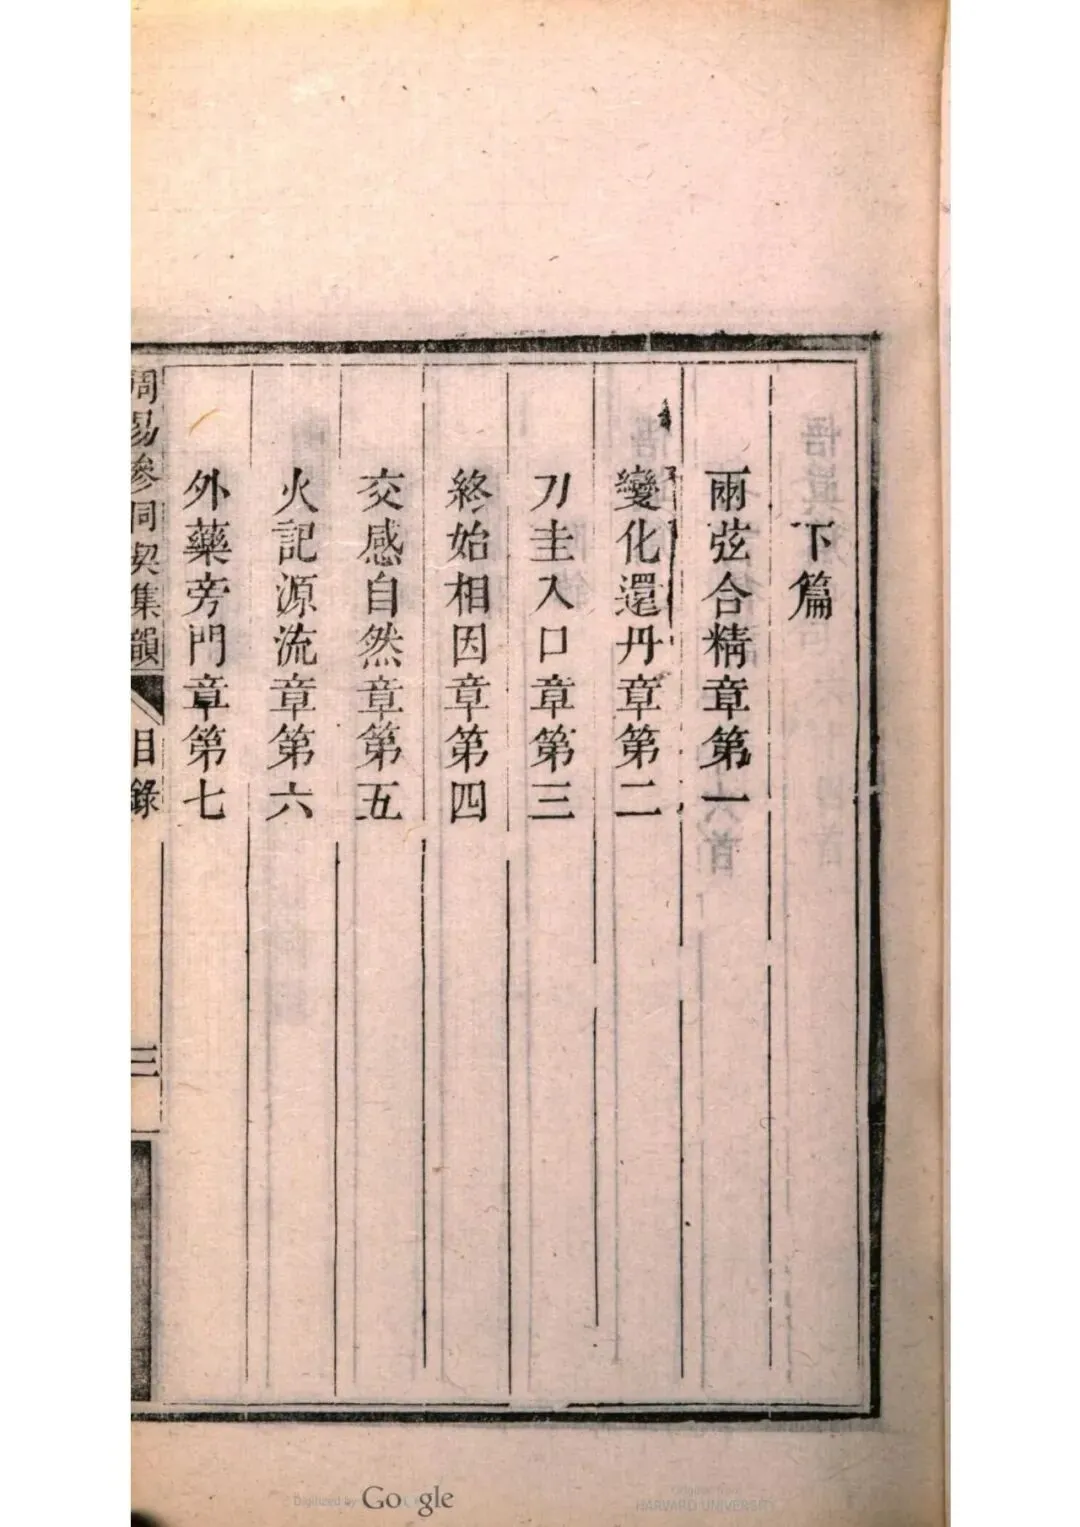 下篇
兩弦合精章第一
變化還丹章第二
刀圭入口章第三
終始相因章第四
交感自然章第五
火記源流章第六
外藥旁門章第七
周易參同契集韻
目錄
三
Digitized by Google
Original from
HARVARD UNIVERSITY